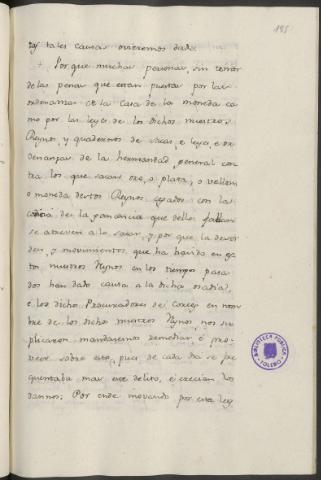 195
tales causas ovieremos dada.
Porque muchas personas, sin temor
de las penas que estan puestas por las
ordenanzas de la Casa de la moneda co-
mo por las leyes de los dichos nuestros
Reynos, y quadernos de sacas, e leyes, e or-
denanzas de la hermandad general con-
tra los que sacan oro, o plata, o vellon,
o moneda destos Reynos, cegados con la
de la ganancia que dello
se atreven a lo sacar, y por que la desor-
den, y movimientos que ha havido en es-
tos nuestros Reynos en los tiempos pasa-
dos han dado causa a la dicha osadia,
e los dichos Procuradores de Cortes en nom-
bre de los dichos nuestros Reynos nos su-
plicaron mandasemos remediar é pro-
veer sobre esto, pues de cada dia se fre-
quentaba mas este delito, é crecian los
dannos; Por ende movando por esta ley
BIBLIOTECA PÚBLICA
TOLEDO